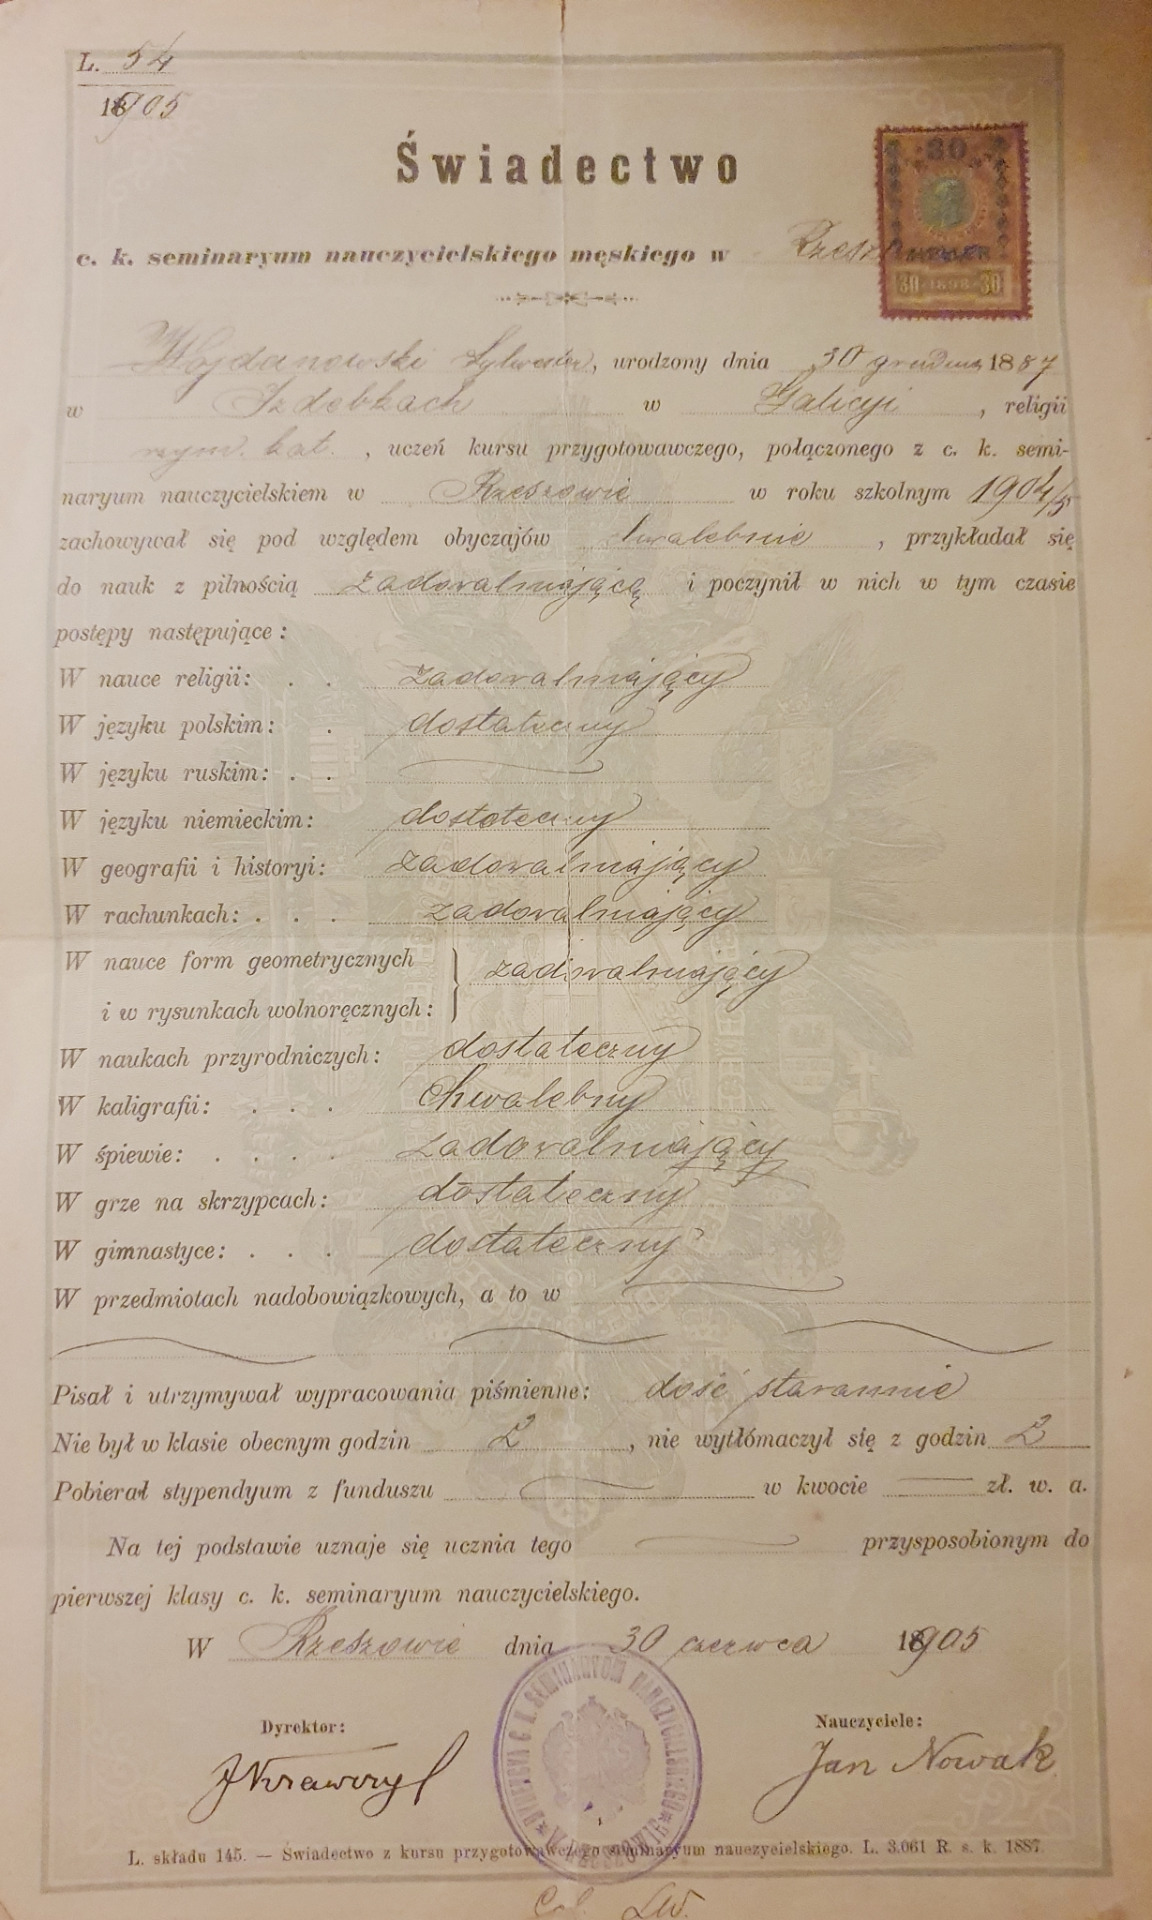 L. 54
1905
Świadectwo
c. k. seminaryum nauczycielskiego męskiego w
30
30 1898 30
Wojdanowski Sylwester, urodzony dnia 30 grudnia 1887
w Izdebkach w Galicyi, religii
rzym. kat., uczeń kursu przygotowawczego, połączonego z c. k. semi-
naryum nauczycielskiem w Rzeszowie w roku szkolnym 1904/5
zachowywał się pod względem obyczajów chwalebnie, przykładał się
do nauk z pilnością zadowalniającą i poczynił w nich w tym czasie
postępy następujące:
W nauce religii: . . zadowalniający
W języku polskim: . dostateczny
W języku ruskim: . .
W języku niemieckim: dostateczny
W geografii i historyi: zadowalniający
W rachunkach: . . . zadowalniający
W nauce form geometrycznych
i w rysunkach wolnoręcznych: } zadowalniający
W naukach przyrodniczych: dostateczny
W kaligrafii: . . . chwalebny
W śpiewie: . . . . zadowalniający
W grze na skrzypcach: dostateczny
W gimnastyce: . . . dostateczny
W przedmiotach nadobowiązkowych, a to w
Pisał i utrzymywał wypracowania piśmienne: dość starannie
Nie był w klasie obecnym godzin 2, nie wytłómaczył się z godzin 2
Pobierał stypendyum z funduszu w kwocie zł. w. a.
Na tej podstawie uznaje się ucznia tego przysposobionym do
pierwszej klasy c. k. seminaryum nauczycielskiego.
W Rzeszowie dnia 30 czerwca 1905
Dyrektor: Nauczyciele:
Jan Nowak
DYREKCYA C. K. SEMINARYUM NAUCZYCIELSKIEGO W RZESZOWIE
L. składu 145. — Świadectwo z kursu przygotowawczego seminaryum nauczycielskiego. L. 3.061 R. s. k. 1887.